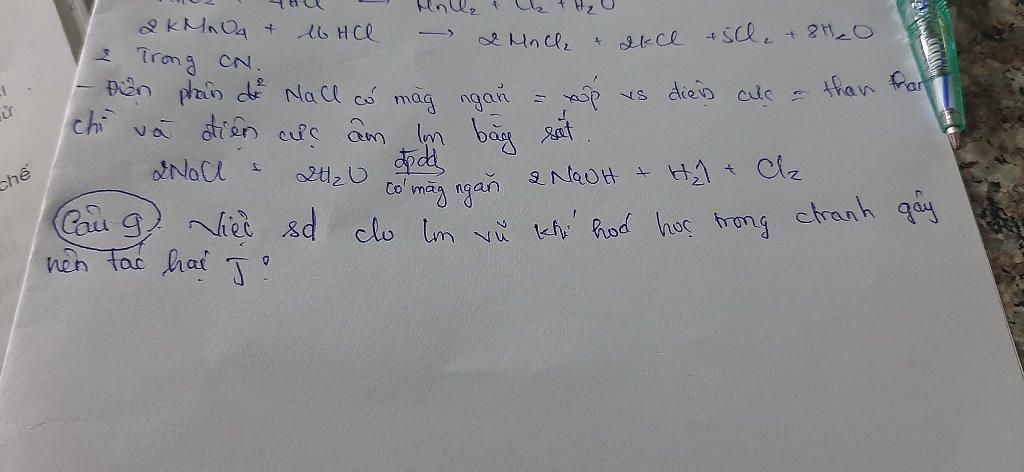 4HCl → MnCl2 + Cl2 + H2O
2KMnO4 + 16 HCl → 2MnCl2 + 2KCl + 5Cl2 + 8H2O
2 Trong CN.
- Điện phân d2 NaCl có màg ngăn = xốp vs điện cực = than
chì và điện cực âm lm bằg sắt.
2NaCl + 2H2O đpdd có màg ngăn 2NaOH + H2↑ + Cl2
Câu 9. Việc sd clo lm vũ khí hoá học trong ctranh gây
nên tác hại J?
chế